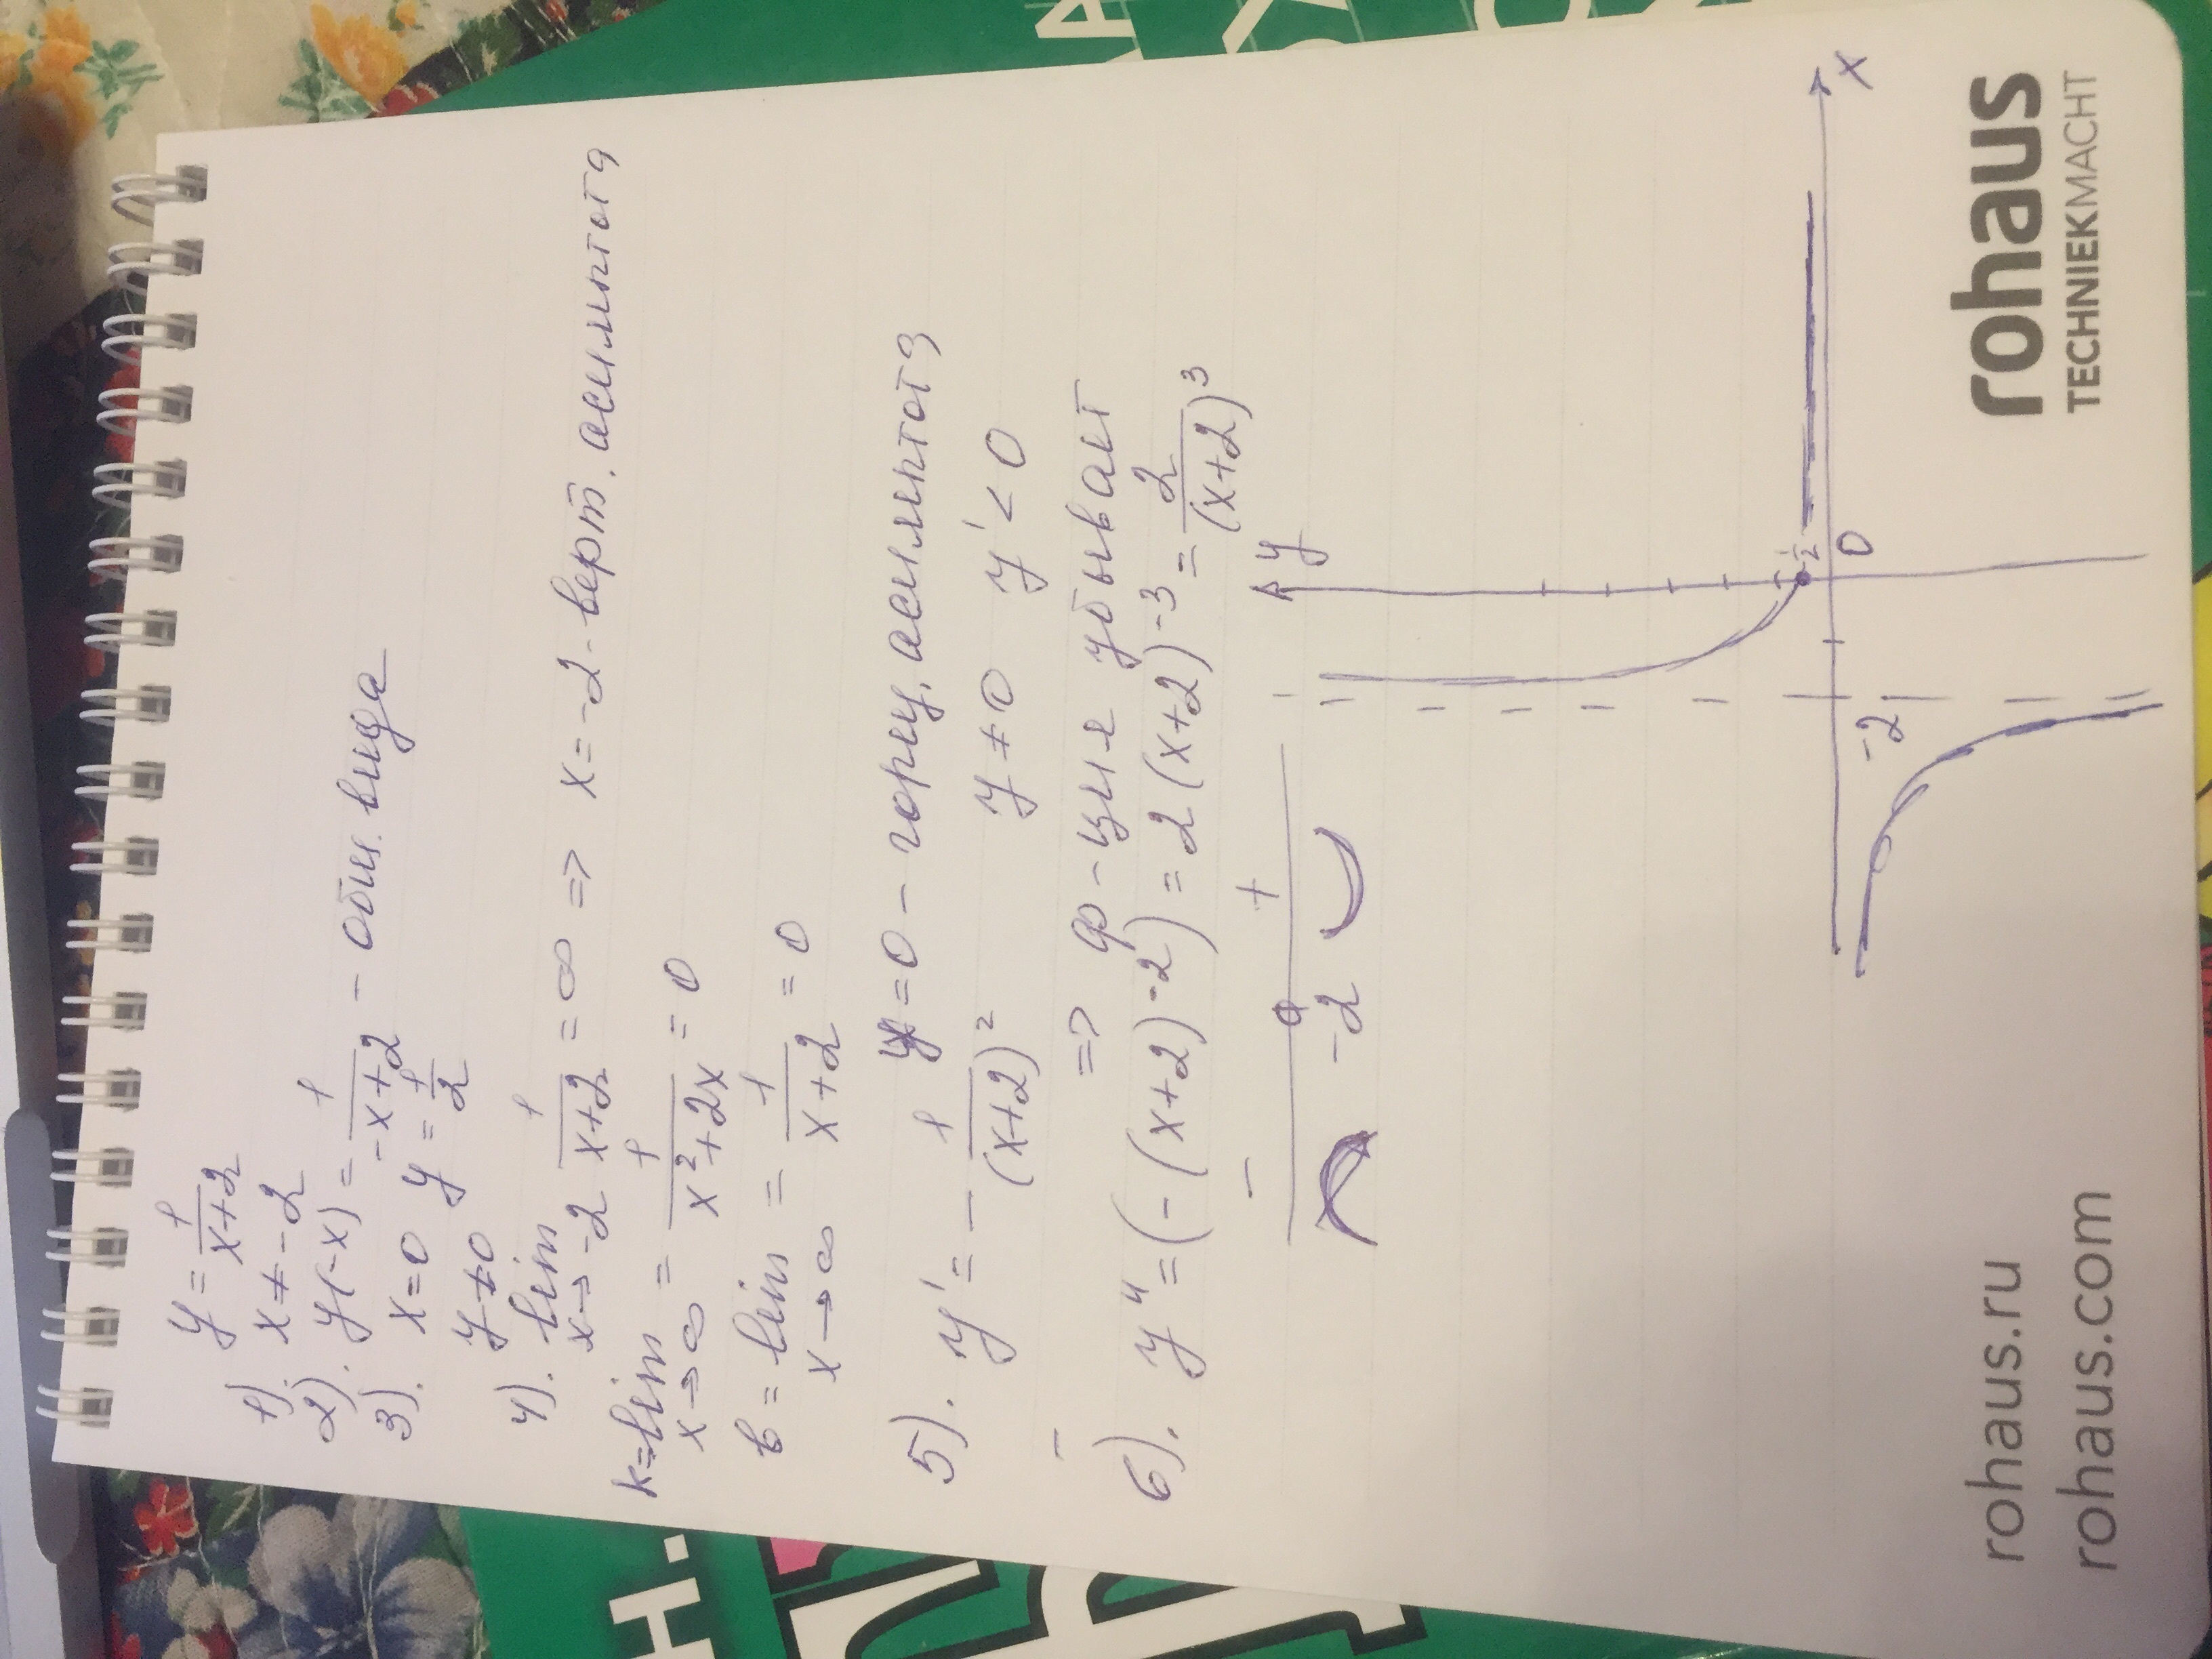 y = 1/(x+2)
1). x ≠ -2
2). y(-x) = 1/(-x+2) - общ. вида
3). x=0 y = 1/2
y ≠ 0
4). lim x→-2 1/(x+2) = ∞ => x = -2 - верт. асимптота
k = lim x→∞ = 1/(x²+2x) = 0
b = lim x→∞ = 1/(x+2) = 0
y=0 - гориз. асимптота
5). y' = - 1/(x+2)² y ≠ 0 y' < 0
=> ф-ция убывает
6). y'' = (-(x+2)⁻²)' = 2(x+2)⁻³ = 2/(x+2)³
- +
-2
y
1/2
0
x
-2
rohaus
TECHNIEKMACHT
rohaus.ru
rohaus.com